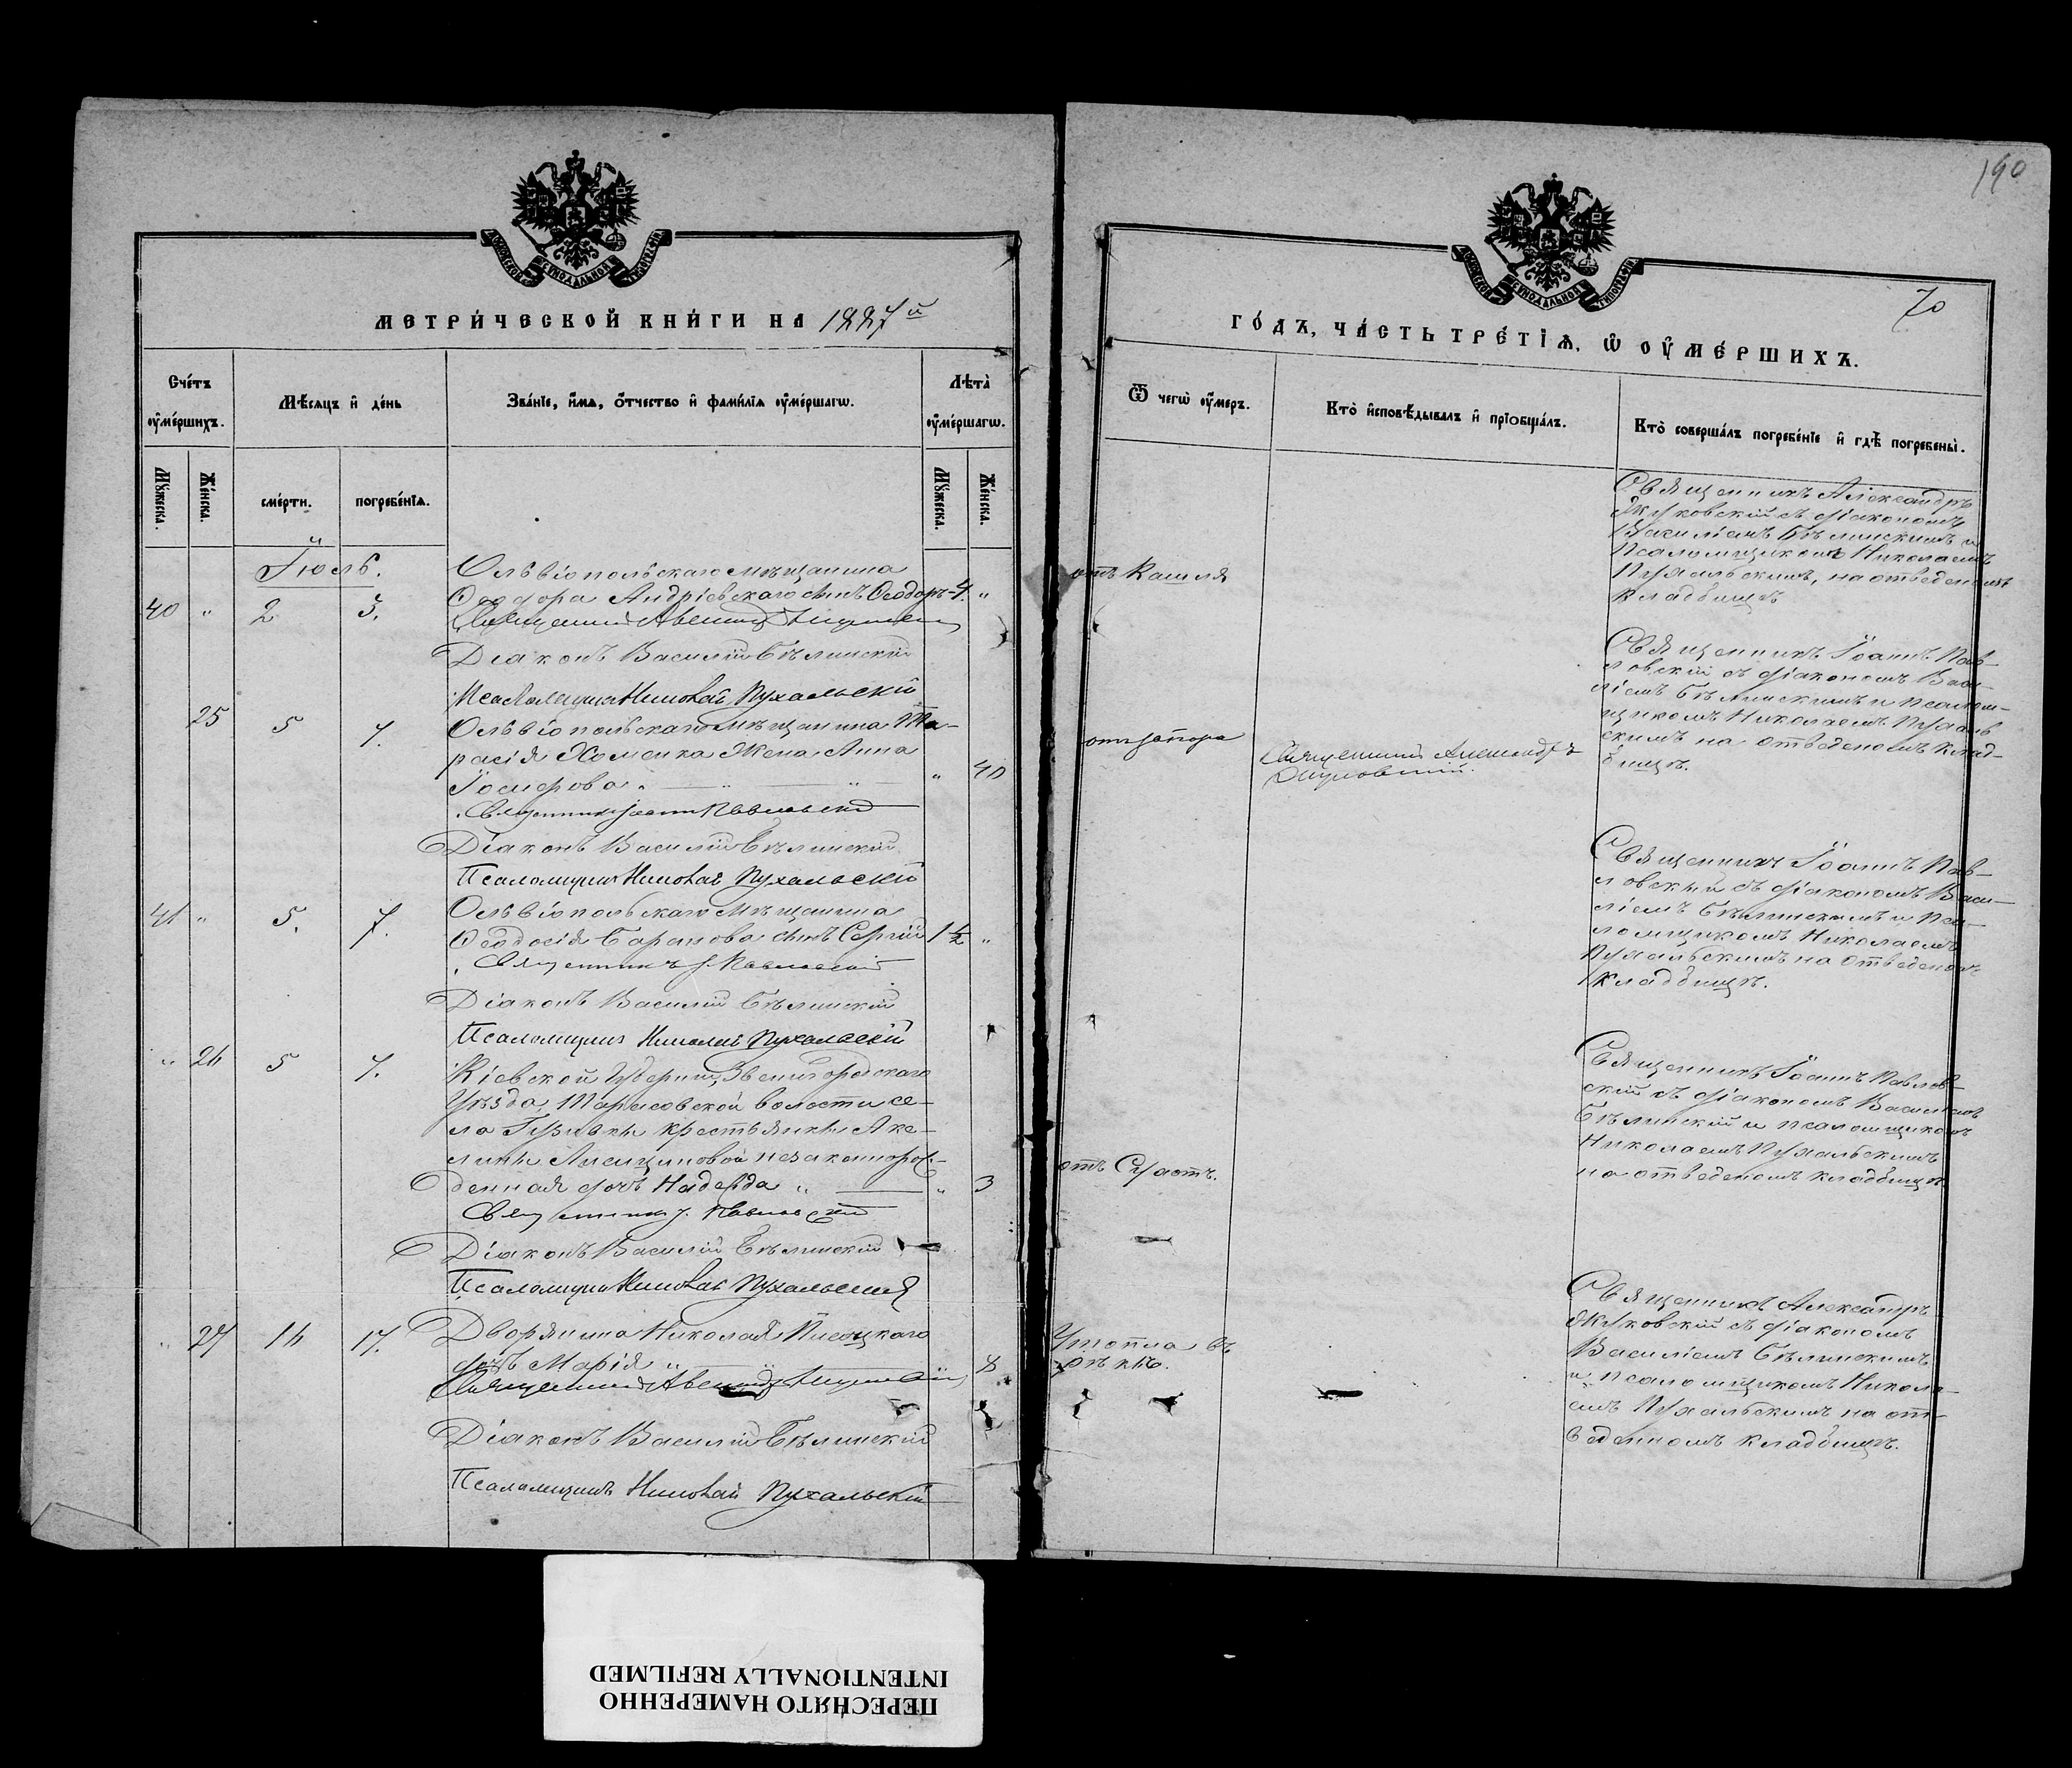 190
70
МОСКОВСКОЙ СѴНОДАЛЬНОЙ ТИПОГРАФІИ
МЕТРИ́ЧЕСКОЙ КНИ́ГИ НА 1887й
Сче́тъ оуме́ршихъ.
Мѣ́сяцъ и де́нь
Зва́нїе, и́мя, о́тчество и фами́лїя оуме́ршагω.
Лѣта̀ оуме́ршагω.
Мꙋ́жеска.
Же́нска.
сме́рти.
погребе́нїя.
Мꙋ́жеска.
Же́нска.
Іюль.
Ольвіопольскаго мѣщанина
40 " 2 3. Ѳеодора Андріевскаго сынъ Ѳеодоръ - 4. "
Священникъ
Діаконъ Василій Бѣлинскій
Псаломщикъ Николай Пухальскій
25 5 7. Ольвіопольскаго мѣщанина Та-
расія Хоменка жена Анна
Іосифова " 40
Священникъ Іоаннъ Павловскій
Діаконъ Василій Бѣлинскій
Псаломщикъ Николай Пухальскій
41 " 5. 7. Ольвіопольскаго мѣщанина
Ѳеодосія Баранова сынъ Сергій 1½ "
Священникъ І. Павловскій
Діаконъ Василій Бѣлинскій
Псаломщикъ Николай Пухальскій
" 26 5 7. Кіевской губерніи, Звенигородскаго
уѣзда, Тарасовской волости се-
ла крестьянки Аке-
лины незаконорож-
денная дочь Надежда " 3
Священникъ І. Павловскій
Діаконъ Василій Бѣлинскій
Псаломщикъ Николай Пухальскій
" 27 16 17. Дворянина Николая
дочь Марія " 8
Священникъ
Діаконъ Василій Бѣлинскій
Псаломщикъ Николай Пухальскій
МОСКОВСКОЙ СѴНОДАЛЬНОЙ ТИПОГРАФІИ
ГО́ДЪ, ЧА́СТЬ ТРЕ́ТІЯ, Ѡ ОУМЕ́РШИХЪ.
Ѿ чегѡ̀ оу́меръ.
Кто̀ и҆сповѣ́дывалъ и прїобща́лъ.
Кто̀ соверша́лъ погребе́нїе и гдѣ̀ погребены̀.
отъ Кашля
Священникъ Александръ
Жуковскій съ діакономъ
Василіемъ Бѣлинскимъ и
Псаломщикомъ Николаемъ
Пухальскимъ, на отведеномъ
кладбищѣ
отъ запора
Священникъ Александръ
Жуковскій.
Священникъ Іоаннъ Пав-
ловскій съ діакономъ Васи-
ліемъ Бѣлинскимъ и псалом-
щикомъ Николаемъ Пухаль
скимъ на отведеномъ клад-
бищѣ.
Священникъ Іоаннъ Пав-
ловскій съ діакономъ Васи-
ліемъ Бѣлинскимъ и Пса-
ломщикомъ Николаемъ
Пухальскимъ на отведеном
кладбищѣ.
отъ Сухотъ.
Священникъ Іоаннъ Павлов-
скій съ діакономъ Василіемъ
Бѣлинскій и псаломщикомъ
Николаемъ Пухальскимъ
на отведеномъ кладбищѣ
Утопла въ
рѣкѣ.
Священникъ Александръ
Жуковскій съ діакономъ
Василіемъ Бѣлинскимъ
и псаломщикомъ Никола-
емъ Пухальскимъ на от-
веденномъ кладбищѣ.
ПЕРЕСНЯТО НАМЕРЕННО
INTENTIONALLY REFILMED